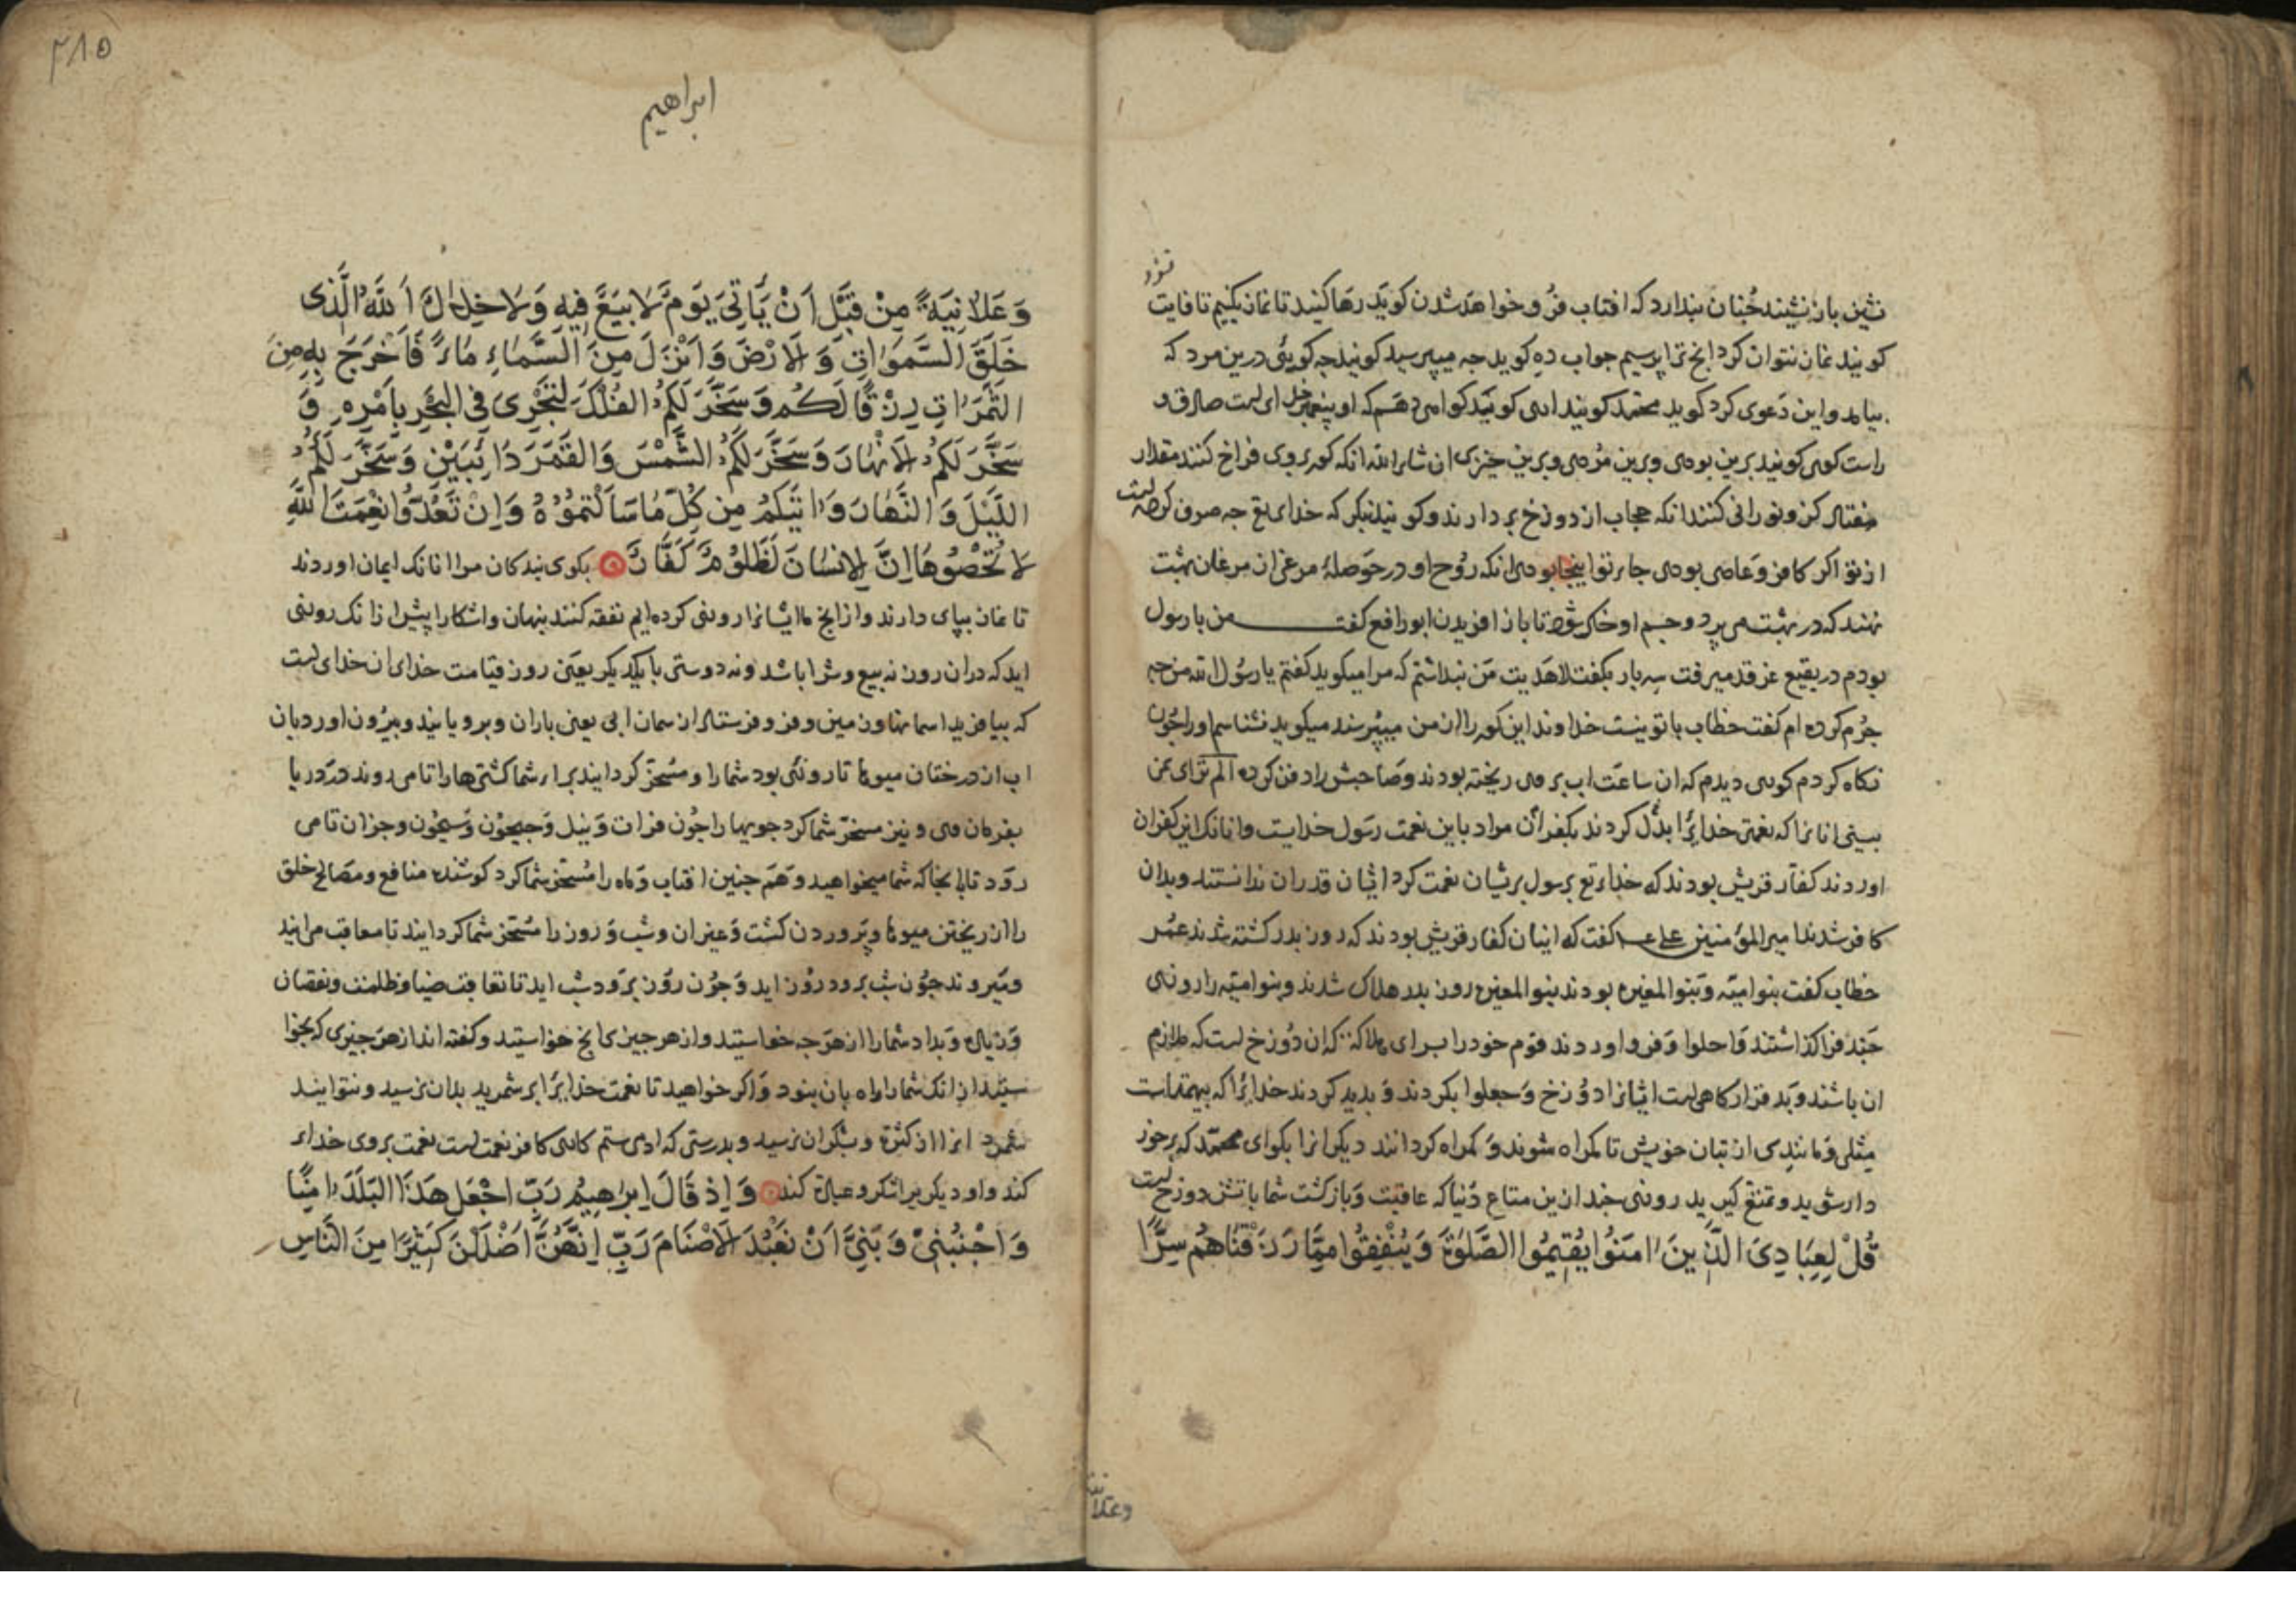 نشین باز نشینند چنان پندارد که افتاب فرو خواهد شدن کوید رها کنید تا نماز بکنیم تا فایت
نشود
کویند نماز نتوان کرد انج ترا پرسیم جواب ده کوید چه میپرسید کویند چه کویی درین مرد که
بیامد و این دعوی کرد کوید محمد کویند اری کوید کواهی دهم که او پیغمبر خدای است صادق و
راست کوی کویند برین بودی و برین مردی و برین خیزی ان شاء الله انکه کور بروی فراخ کنند مقدار
هفتاد کز و نورانی کنند انکه حجاب از دوزخ بر دارند و کویند بنکر که خدای تع چه صرف کرده است
از تو اکر کافر و عاصی بودی جای تو اینجا بودی انکه روح او در حوصله مرغی از مرغان بهشت
نهند که در بهشت می پرد و جسم او خاک شود تا باز افریدن ابورافع کفت من با رسول
بودم در بقیع غرقد میرفت سه بار بکفت لا هدیت من پنداشتم که مرا میکوید کفتم یا رسول الله من چه
جرم کرده ام کفت خطاب با تو نیست خداوند این کور را از من میپرسند میکوید نشناسم او را چون
نکاه کردم کوری دیدم که ان ساعت اب بر وی ریخته بودند و صاحبش را دفن کرده الم تر ای نمی
بینی انانرا که نعمتی خدایرا بدل کردند بکفران مراد باین نعمت رسول خدایست و انانک این کفران
اوردند کفار قریش بودند که خدای تع برسول بریشان نعمت کرد ایشان قدر ان ندانستند و بدان
کافر شدند امیر المؤمنین علی ع کفت که اینان کفار قریش بودند که روز بدر کشته شدند عمر
خطاب کفت بنو امیه و بنو المغیره بودند بنو المغیره روز بدر هلاک شدند و بنو امیه را روزی
چند فرا کذاشتند و احلوا و فرو اوردند قوم خود را برای هلاک که ان دوزخ است که ملازم
ان باشند و بد قرارکاهی است ایشانرا دوزخ و جعلوا بکردند و بدید کردند خدایرا که بیهمتاست
مثلی و مانندی از بتان خویش تا کمراه شوند و کمراه کردانند دیکرانرا بکو ای محمد که برخور
دار شوید و تمتع کیرید روزی چند ازین متاع دنیا که عاقبت و بازکشت شما باتش دوزخ است
قُلْ لِعِبَادِيَ الَّذِينَ اٰمَنُوا يُقِيمُوا الصَّلٰوةَ وَيُنْفِقُوا مِمَّا رَزَقْنَاهُمْ سِرًّا
وعلانیة
۴۱۵
ابراهیم
وَعَلَانِيَةً مِنْ قَبْلِ اَنْ يَأْتِيَ يَوْمٌ لَا بَيْعٌ فِيهِ وَلَا خِلَالٌ اَللّٰهُ الَّذِى
خَلَقَ السَّمٰوَاتِ وَالْاَرْضَ وَاَنْزَلَ مِنَ السَّمَاءِ مَاءً فَاَخْرَجَ بِهِ مِنَ
الثَّمَرَاتِ رِزْقًا لَكُمْ وَسَخَّرَ لَكُمُ الْفُلْكَ لِتَجْرِىَ فِى الْبَحْرِ بِاَمْرِهِ وَ
سَخَّرَ لَكُمُ الْاَنْهَارَ وَسَخَّرَ لَكُمُ الشَّمْسَ وَالْقَمَرَ دَائِبَيْنِ وَسَخَّرَ لَكُمُ
اللَّيْلَ وَالنَّهَارَ وَاٰتٰيكُمْ مِنْ كُلِّ مَا سَاَلْتُمُوهُ وَاِنْ تَعُدُّوا نِعْمَتَ اللّٰهِ
لَا تُحْصُوهَا اِنَّ الْاِنْسَانَ لَظَلُومٌ كَفَّارٌ بکوی بندکان مرا انانک ایمان اوردند
تا نماز بپای دارند و از انج ما ایشانرا روزی کرده ایم نفقه کنند پنهان و اشکارا پیش از انک روزی
اید که دران روز نه بیع و شرا باشد و نه دوستی با یکدیکر یعنی روز قیامت خدای ان خدای است
که بیافرید اسمانها و زمین و فرو فرستاد از اسمان ابی یعنی باران و برویانید و بیرون اورد بان
اب از درختان میوها تا روزی بود شما را و مسخر کردانید برای شما کشتی ها را تا می روند در دریا
بفرمان وی و نیز مسخر شما کرد جویها را چون فرات و نیل و جیحون و سیحون و جزان تا می
رود تا انجا که شما میخواهید و هم چنین افتاب و ماه را مسخر شما کرد کوشنده منافع و مصالح خلق
را از ریختن میوها و پروردن کشت و غیر ان و شب و روز را مسخر شما کردانید تا معاقب می ایند
و میروند چون شب برود روز اید و چون روز برود شب اید تا تعاقب ضیا و ظلمت و نقصان
و زیاده و بداد شما را از هر چه خواستید و از هر چیزی انج خواستید و کفته اند از هر چیزی که بخوا
ستید از انک شما را راه بان بنود و اکر خواهید تا نعمت خدایرا بر شمرید بدان نرسید و نتوانید
شمرد انرا از کثرت و بشکر ان نرسید و بدرستی که ادمی ستم کاری کافر نعمت است نعمت بروی خدای
کند و او دیکریرا شکر و عبادت کند وَاِذْ قَالَ اِبْرٰهِيمُ رَبِّ اجْعَلْ هٰذَا الْبَلَدَ اٰمِنًا
وَاجْنُبْنِىْ وَبَنِىَّ اَنْ نَعْبُدَ الْاَصْنَامَ رَبِّ اِنَّهُنَّ اَضْلَلْنَ كَثِيرًا مِنَ النَّاسِ